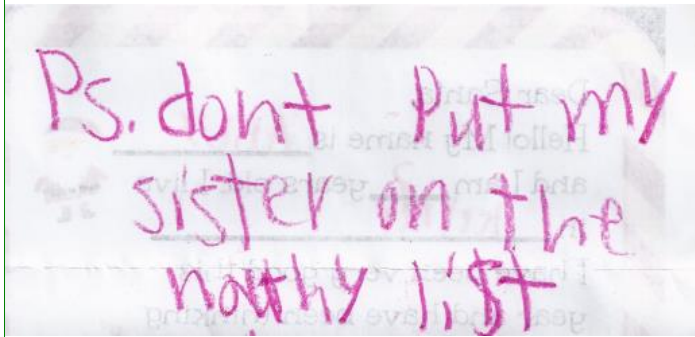 Ps. dont Put my
sister on the
nouthy list